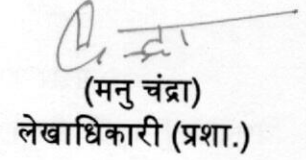 (मनु चंद्रा)
लेखाधिकारी (प्रशा.)